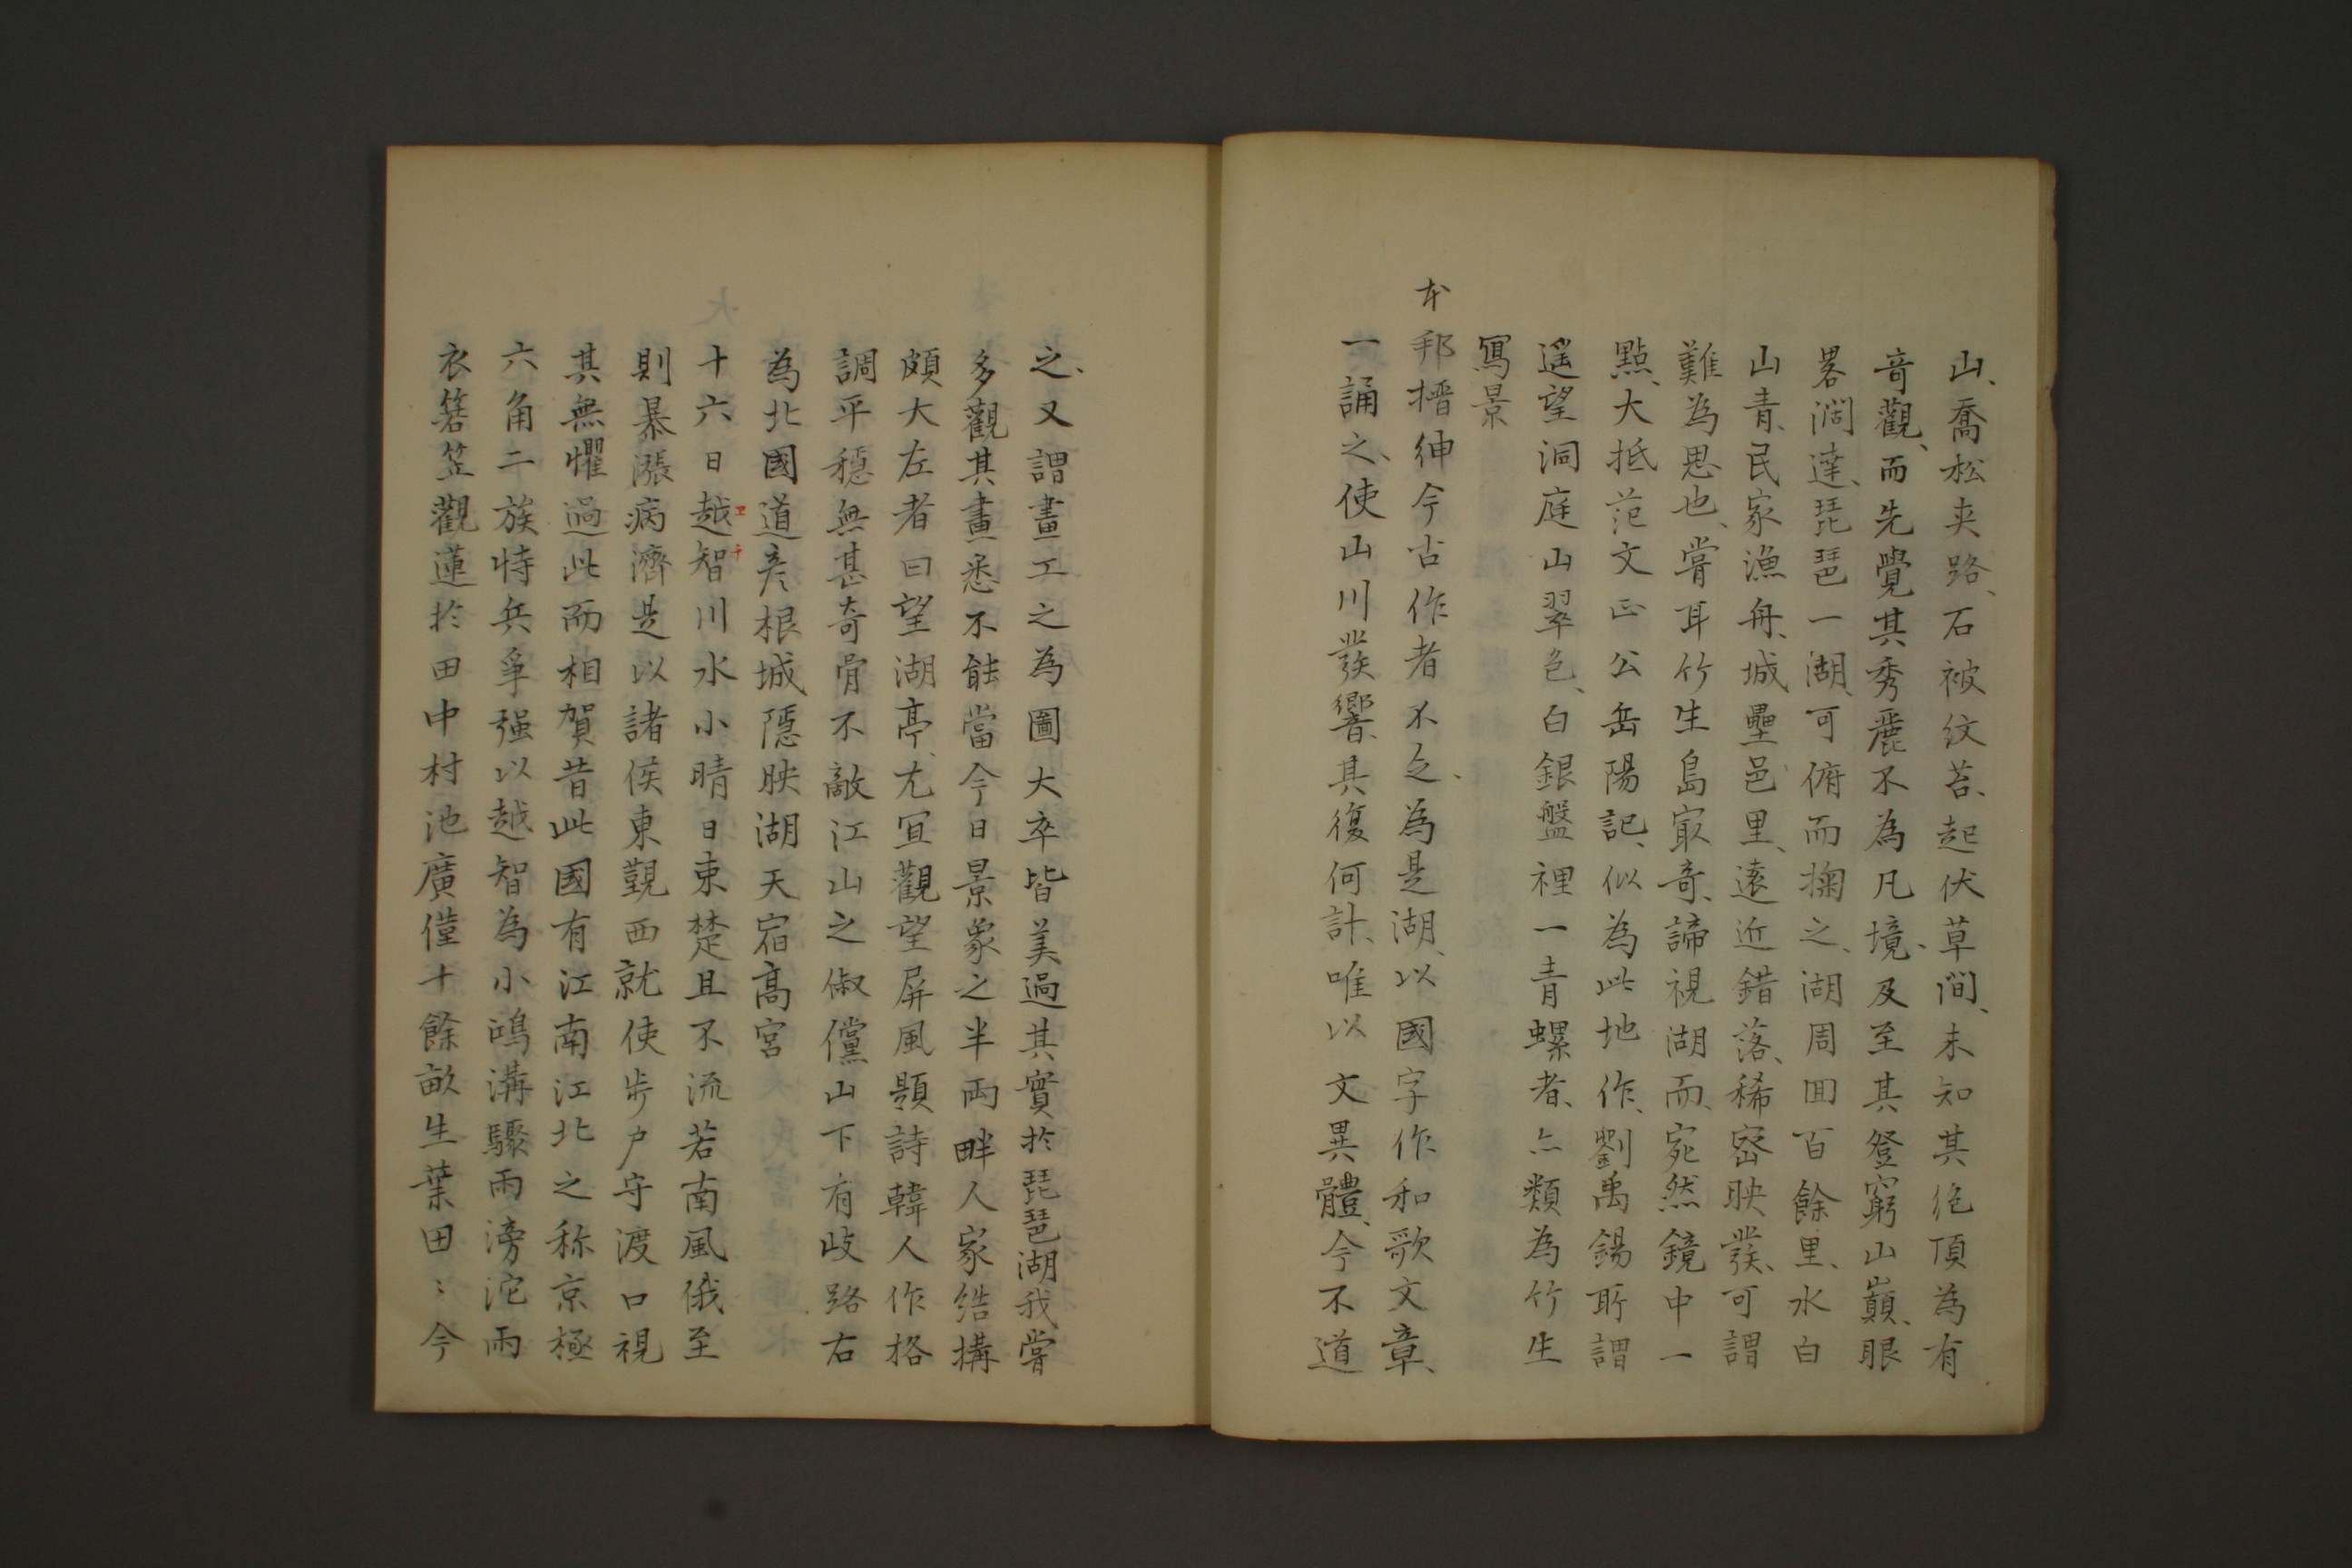 山、喬松夾路、石被紋苔、起伏草間、未知其絶頂為有
竒觀、而先覺其秀麗不為凡境、及至其登窮山巔、眼
畧濶達、琵琶一湖、可俯而掬之、湖周囬百餘里、水白
山青、民家漁舟、城壘邑里、遠近錯落、稀密映發、可謂
難為思也、嘗耳竹生島㝡竒、諦視湖而、宛然鏡中一
點、大抵范文正公岳陽記、似為此地作、劉禹錫所謂
遥望洞庭山翠色、白銀盤裡一青螺者、亦類為竹生
寫景
本邦搢紳今古作者不乏、為是湖、以國字作和歌文章、
一誦之、使山川發響、其復何計、唯以文異體、今不道
之、又謂畫工之為圖大卒皆美過其實於琵琶湖我嘗
多觀其畫悉不能當今日景象之半両畔人家結搆
頗大左者曰望湖亭、尤宜觀望屏風題詩韓人作格
調平穏無甚奇骨不敵江山之俶儻山下有岐路右
為北國道彦根城隱映湖天宿髙宮
十六日越智川水小晴日束楚且不流若南風俄至
則暴漲病濟是以諸侯東覲西就使歩戶守渡口視
其無懼過此而相賀昔此國有江南江北之称京極
六角二族恃兵爭强以越智為小鴻溝驟雨滂沱雨
衣箬笠觀蓮於田中村池廣僅十餘畝生葉田〻今